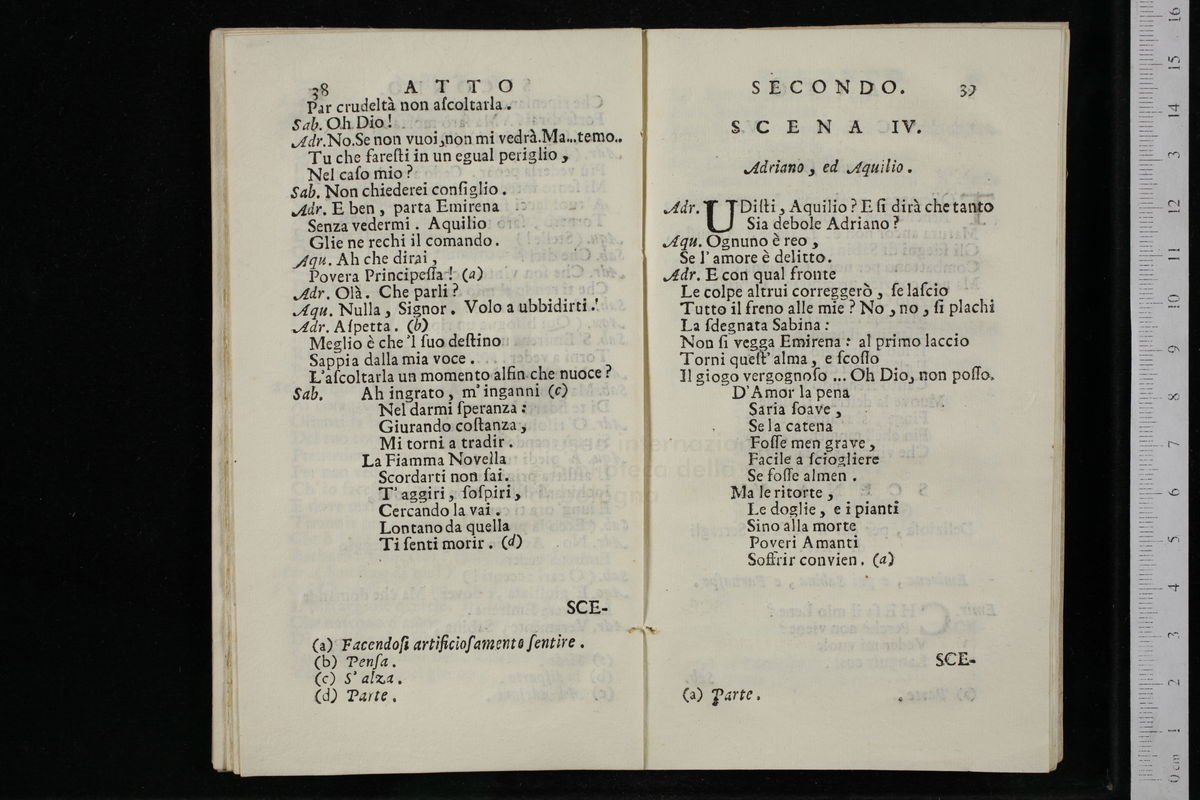 38 ATTO
Par crudeltà non aſcoltarla.
Sab. Oh Dio!
Adr. No. Se non vuoi, non mi vedrà. Ma... temo..
Tu che fareſti in un egual periglio,
Nel caſo mio?
Sab. Non chiederei conſiglio.
Adr. E ben, parta Emirena
Senza vedermi. Aquilio
Glie ne rechi il comando.
Aqu. Ah che dirai,
Povera Principeſſa! (a)
Adr. Olà. Che parli?
Aqu. Nulla, Signor. Volo a ubbidirti.!
Adr. Aſpetta. (b)
Meglio è che 'l ſuo deſtino
Sappia dalla mia voce.
L'aſcoltarla un momento alfin che nuoce?
Sab. Ah ingrato, m'inganni (c)
Nel darmi ſperanza:
Giurando coſtanza,
Mi torni a tradir.
La Fiamma Novella
Scordarti non ſai.
T'aggiri, ſoſpiri,
Cercando la vai.
Lontano da quella
Ti ſenti morir. (d)
SCE-
(a) Facendoſi artificioſamente ſentire.
(b) Penſa.
(c) S'alza.
(d) Parte.
SECONDO. 39
SCENA IV.
Adriano, ed Aquilio.
Adr. UDiſti, Aquilio? E ſi dirà che tanto
Sia debole Adriano?
Aqu. Ognuno è reo,
Se l'amore è delitto.
Adr. E con qual fronte
Le colpe altrui correggerò, ſe laſcio
Tutto il freno alle mie? No, no, ſi plachi
La ſdegnata Sabina:
Non ſi vegga Emirena: al primo laccio
Torni queſt'alma, e ſcoſſo
Il giogo vergognoſo ... Oh Dio, non poſſo.
D'Amor la pena
Saria ſoave,
Se la catena
Foſſe men grave,
Facile a ſciogliere
Se foſſe almen.
Ma le ritorte,
Le doglie, e i pianti
Sino alla morte
Poveri Amanti
Soffrir convien. (a)
SCE-
(a) Parte.
0 cm 1 2 3 4 5 6 7 8 9 10 11 12 13 14 15 16